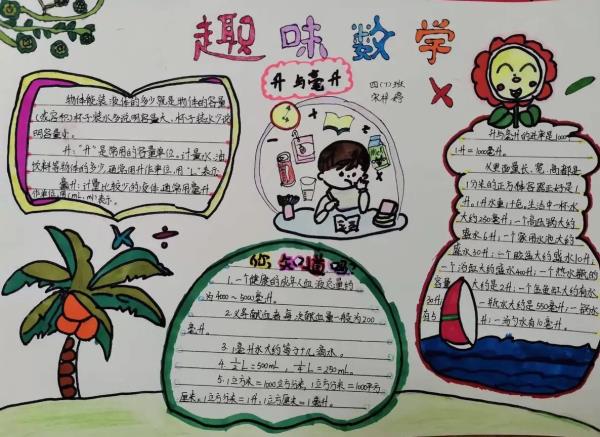 趣味数学
升与毫升
四(1)班
物体能装液体的多少就是物体的容量
(或容积)杯子装水多说明容量大、杯子装水少说
明容量小。
升:"升"是常用的容量单位。计量水、油
饮料等物体的多少,通常用升作单位,用"L"表示。
毫升:计量比较少的液体,通常用毫升
作单位,用(mL、ml)表示。
你知道吗?
1.一个健康的成年人血液总量约
为4000~5000毫升。
2.义务献血者每次献血量一般为200
毫升。
3.1毫升水大约等于十几滴水。
4.½L=500mL,¼L=250mL。
5.1立方米=1000立方分米,1立方分米=1000立方
厘米。1立方分米=1升,1立方厘米=1毫升。
升与毫升的进率是1000
1升=1000毫升。
从里面量长、宽、高都是
1分米的正方体容器正好是1
升。1升水重1千克,生活中一杯水
大约250毫升,一个高压锅大约
盛水6升,一个家用水池大约
盛水30升,一个脸盆大约盛水10升,
一个浴缸大约盛水400升,一个热水瓶的
容量大约是2升,一个金鱼缸大约有水
30升,一瓶水大约是550毫升,一锅水
有5升,一汤勺水有10毫升。